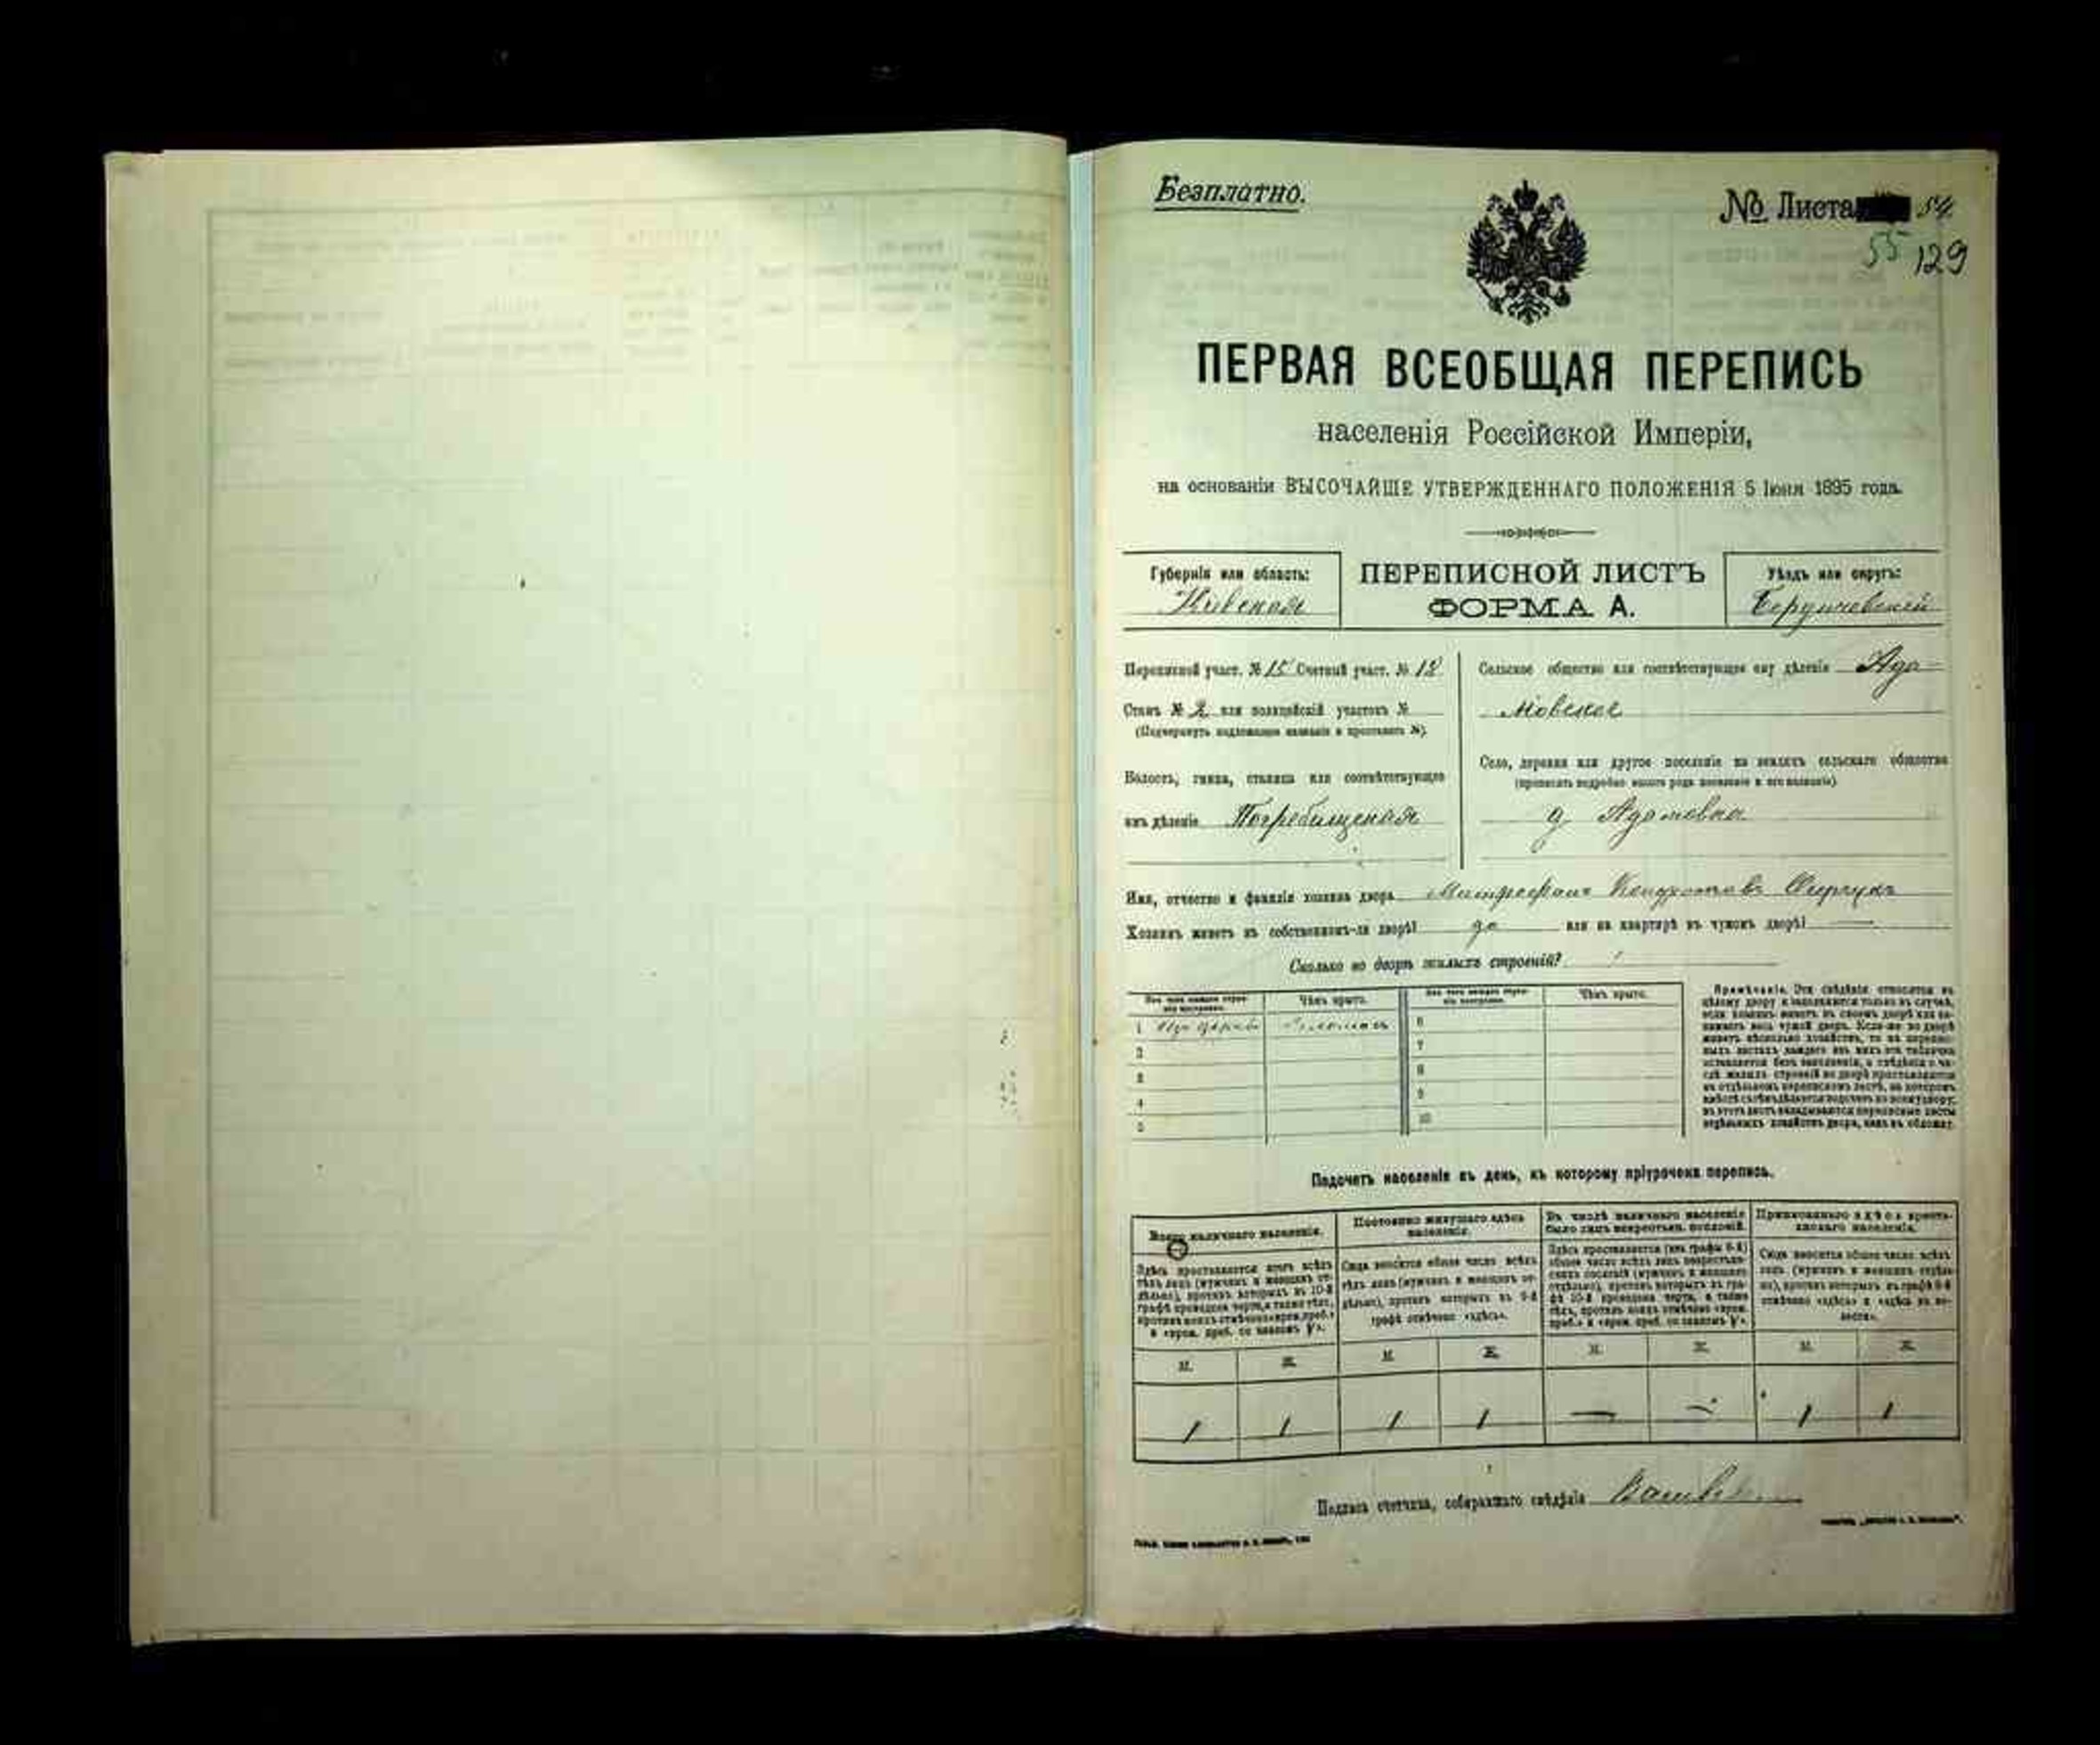 Безплатно.
№ Листа 54
55 129
ПЕРВАЯ ВСЕОБЩАЯ ПЕРЕПИСЬ
населенія Россійской Имперіи,
на основаніи ВЫСОЧАЙШЕ УТВЕРЖДЕННАГО ПОЛОЖЕНІЯ 5 Іюня 1895 года.
Губернія или область:
Кіевская
ПЕРЕПИСНОЙ ЛИСТЪ
ФОРМА А.
Уѣздъ или округъ:
Бердичевскій
Переписной участ. № 15 Счетный участ. № 12
Станъ № 2 или полицейскій участокъ №
(Подчеркнуть надлежащее названіе и проставить №).
Волость, гмина, станица или соотвѣтствующее
имъ дѣленіе Погребищенская
Сельское общество или соотвѣтствующее ему дѣленіе Ада-
мовское
Село, деревня или другое поселеніе на земляхъ сельскаго общества
(прописать подробно какого рода поселеніе и его названіе).
д Адамовка
Имя, отчество и фамилія хозяина двора Митрофанъ Кондратовъ
Хозяинъ живетъ въ собственномъ-ли дворѣ? да или на квартирѣ въ чужомъ дворѣ? —
Сколько во дворѣ жилыхъ строеній? 1
Изъ чего каждое строеніе построено.
Чѣмъ крыто.
Изъ чего каждое строеніе построено.
Чѣмъ крыто.
1 Изъ дерева Соломою
2
3
4
5
6
7
8
9
10
Примѣчаніе. Эти свѣдѣнія относятся къ
цѣлому двору и заполняются только въ случаѣ,
если хозяинъ живетъ въ своемъ дворѣ или за-
нимаетъ весь чужой дворъ. Если-же во дворѣ
живетъ нѣсколько хозяйствъ, то на перепис-
ныхъ листахъ каждаго изъ нихъ эта табличка
оставляется безъ заполненія, а свѣдѣнія о чи-
слѣ жилыхъ строеній во дворѣ проставляются
на отдѣльномъ переписномъ листѣ, на которомъ
въ этотъ листъ вкладываются переписные листы
отдѣльныхъ хозяйствъ двора, какъ въ обложку.
Подсчетъ населенія въ день, къ которому пріурочена перепись.
Всего наличнаго населенія.
Здѣсь проставляется итогъ всѣхъ
тѣхъ лицъ (мужчинъ и женщинъ от-
дѣльно), противъ которыхъ въ 10-й
графѣ проведена черта, а также тѣхъ,
противъ коихъ отмѣчено «врем. преб.»
и «врем. преб. со знакомъ V».
Постоянно живущаго здѣсь
населенія.
Сюда вносится общее число всѣхъ
тѣхъ лицъ (мужчинъ и женщинъ от-
дѣльно), противъ которыхъ въ 9-й
графѣ отмѣчено «здѣсь».
Въ числѣ наличнаго населенія
было лицъ некрестьян. сословій.
Здѣсь проставляется (изъ графы 6-й)
общее число всѣхъ лицъ некрестьян-
скихъ сословій (мужчинъ и женщинъ
отдѣльно), противъ которыхъ въ гра-
фѣ 10-й проведена черта, а также
тѣхъ, противъ коихъ отмѣчено «врем.
преб.» и «врем. преб. со знакомъ V».
Приписаннаго здѣсь кресть-
янскаго населенія.
Сюда вносится общее число всѣхъ
лицъ (мужчинъ и женщинъ отдѣль-
но), противъ которыхъ въ графѣ 8-й
отмѣчено «здѣсь» и «здѣсь въ во-
лости».
М. Ж. М. Ж. М. Ж. М. Ж.
1 1 1 1 — — 1 1
Подпись счетчика, собиравшаго свѣдѣнія